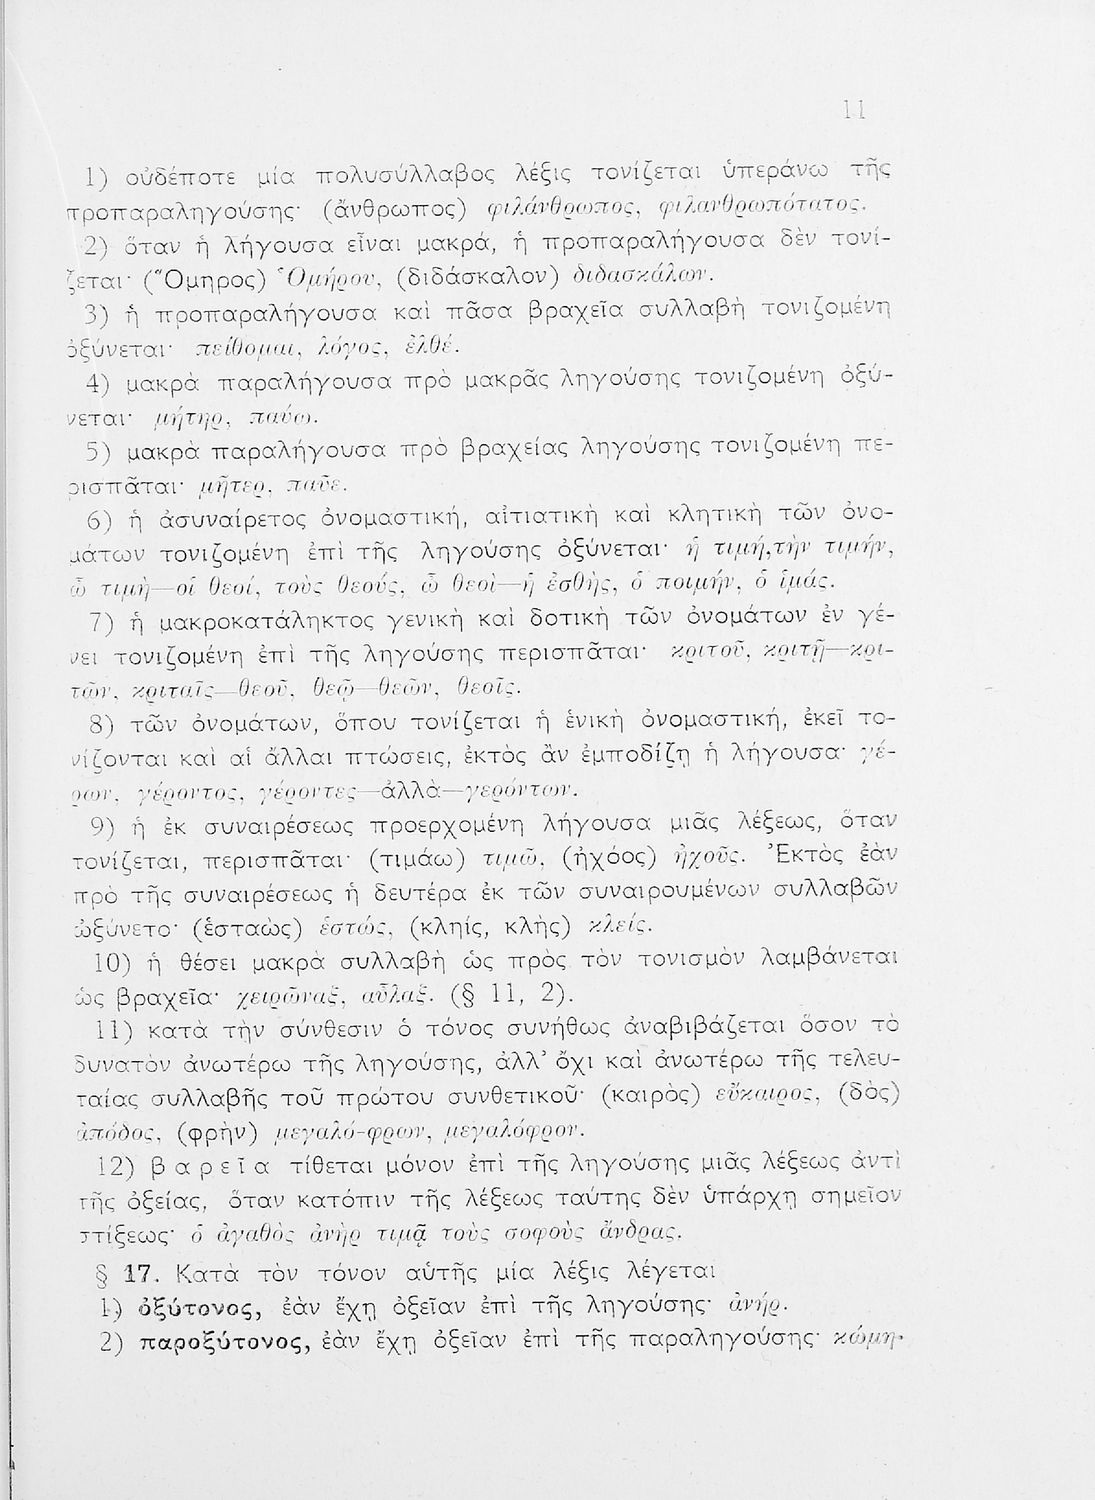 11
1) οὐδέποτε μία πολυσύλλαβος λέξις τονίζεται ὑπεράνω τῆς
προπαραληγούσης· (ἄνθρωπος) φιλάνθρωπος, φιλανθρωπότατος.
2) ὅταν ἡ λήγουσα εἶναι μακρά, ἡ προπαραλήγουσα δὲν τονί-
ζεται· (Ὅμηρος) Ὁμήρου, (διδάσκαλον) διδασκάλων.
3) ἡ προπαραλήγουσα καὶ πᾶσα βραχεῖα συλλαβὴ τονιζομένη
ὀξύνεται· πείθομαι, λόγος, ἐλθέ.
4) μακρὰ παραλήγουσα πρὸ μακρᾶς ληγούσης τονιζομένη ὀξύ-
νεται· μήτηρ, παύω.
5) μακρὰ παραλήγουσα πρὸ βραχείας ληγούσης τονιζομένη πε-
ρισπᾶται· μῆτερ, παῦε.
6) ἡ ἀσυναίρετος ὀνομαστική, αἰτιατικὴ καὶ κλητικὴ τῶν ὀνο-
μάτων τονιζομένη ἐπὶ τῆς ληγούσης ὀξύνεται· ἡ τιμή,τὴν τιμήν,
ὦ τιμὴ—οἱ θεοί, τοὺς θεούς, ὦ θεοὶ—ἡ ἐσθὴς, ὁ ποιμήν, ὁ ἱμάς.
7) ἡ μακροκατάληκτος γενικὴ καὶ δοτικὴ τῶν ὀνομάτων ἐν γέ-
νει τονιζομένη ἐπὶ τῆς ληγούσης περισπᾶται· κριτοῦ, κριτῇ—κρι-
τῶν, κριταῖς—θεοῦ, θεῷ—θεῶν, θεοῖς.
8) τῶν ὀνομάτων, ὅπου τονίζεται ἡ ἑνικὴ ὀνομαστική, ἐκεῖ το-
νίζονται καὶ αἱ ἄλλαι πτώσεις, ἐκτὸς ἂν ἐμποδίζῃ ἡ λήγουσα· γέ-
ρων, γέροντος, γέροντες—ἀλλὰ—γερόντων.
9) ἡ ἐκ συναιρέσεως προερχομένη λήγουσα μιᾶς λέξεως, ὅταν
τονίζεται, περισπᾶται· (τιμάω) τιμῶ, (ἠχόος) ἠχοῦς. Ἐκτὸς ἐὰν
πρὸ τῆς συναιρέσεως ἡ δευτέρα ἐκ τῶν συναιρουμένων συλλαβῶν
ὠξύνετο· (ἑσταὼς) ἑστώς, (κληίς, κλῂς) κλείς.
10) ἡ θέσει μακρὰ συλλαβὴ ὡς πρὸς τὸν τονισμὸν λαμβάνεται
ὡς βραχεῖα· χειρῶναξ, αὖλαξ. (§ 11, 2).
11) κατὰ τὴν σύνθεσιν ὁ τόνος συνήθως ἀναβιβάζεται ὅσον τὸ
δυνατὸν ἀνωτέρω τῆς ληγούσης, ἀλλ’ ὄχι καὶ ἀνωτέρω τῆς τελευ-
ταίας συλλαβῆς τοῦ πρώτου συνθετικοῦ· (καιρὸς) εὔκαιρος, (δὸς)
ἀπόδος, (φρὴν) μεγαλό-φρων, μεγαλόφρον.
12) βαρεῖα τίθεται μόνον ἐπὶ τῆς ληγούσης μιᾶς λέξεως ἀντὶ
τῆς ὀξείας, ὅταν κατόπιν τῆς λέξεως ταύτης δὲν ὑπάρχῃ σημεῖον
στίξεως· ὁ ἀγαθὸς ἀνὴρ τιμᾷ τοὺς σοφοὺς ἄνδρας.
§ 17. Κατὰ τὸν τόνον αὐτῆς μία λέξις λέγεται
1) ὀξύτονος, ἐὰν ἔχῃ ὀξεῖαν ἐπὶ τῆς ληγούσης· ἀνήρ.
2) παροξύτονος, ἐὰν ἔχῃ ὀξεῖαν ἐπὶ τῆς παραληγούσης· κώμη·